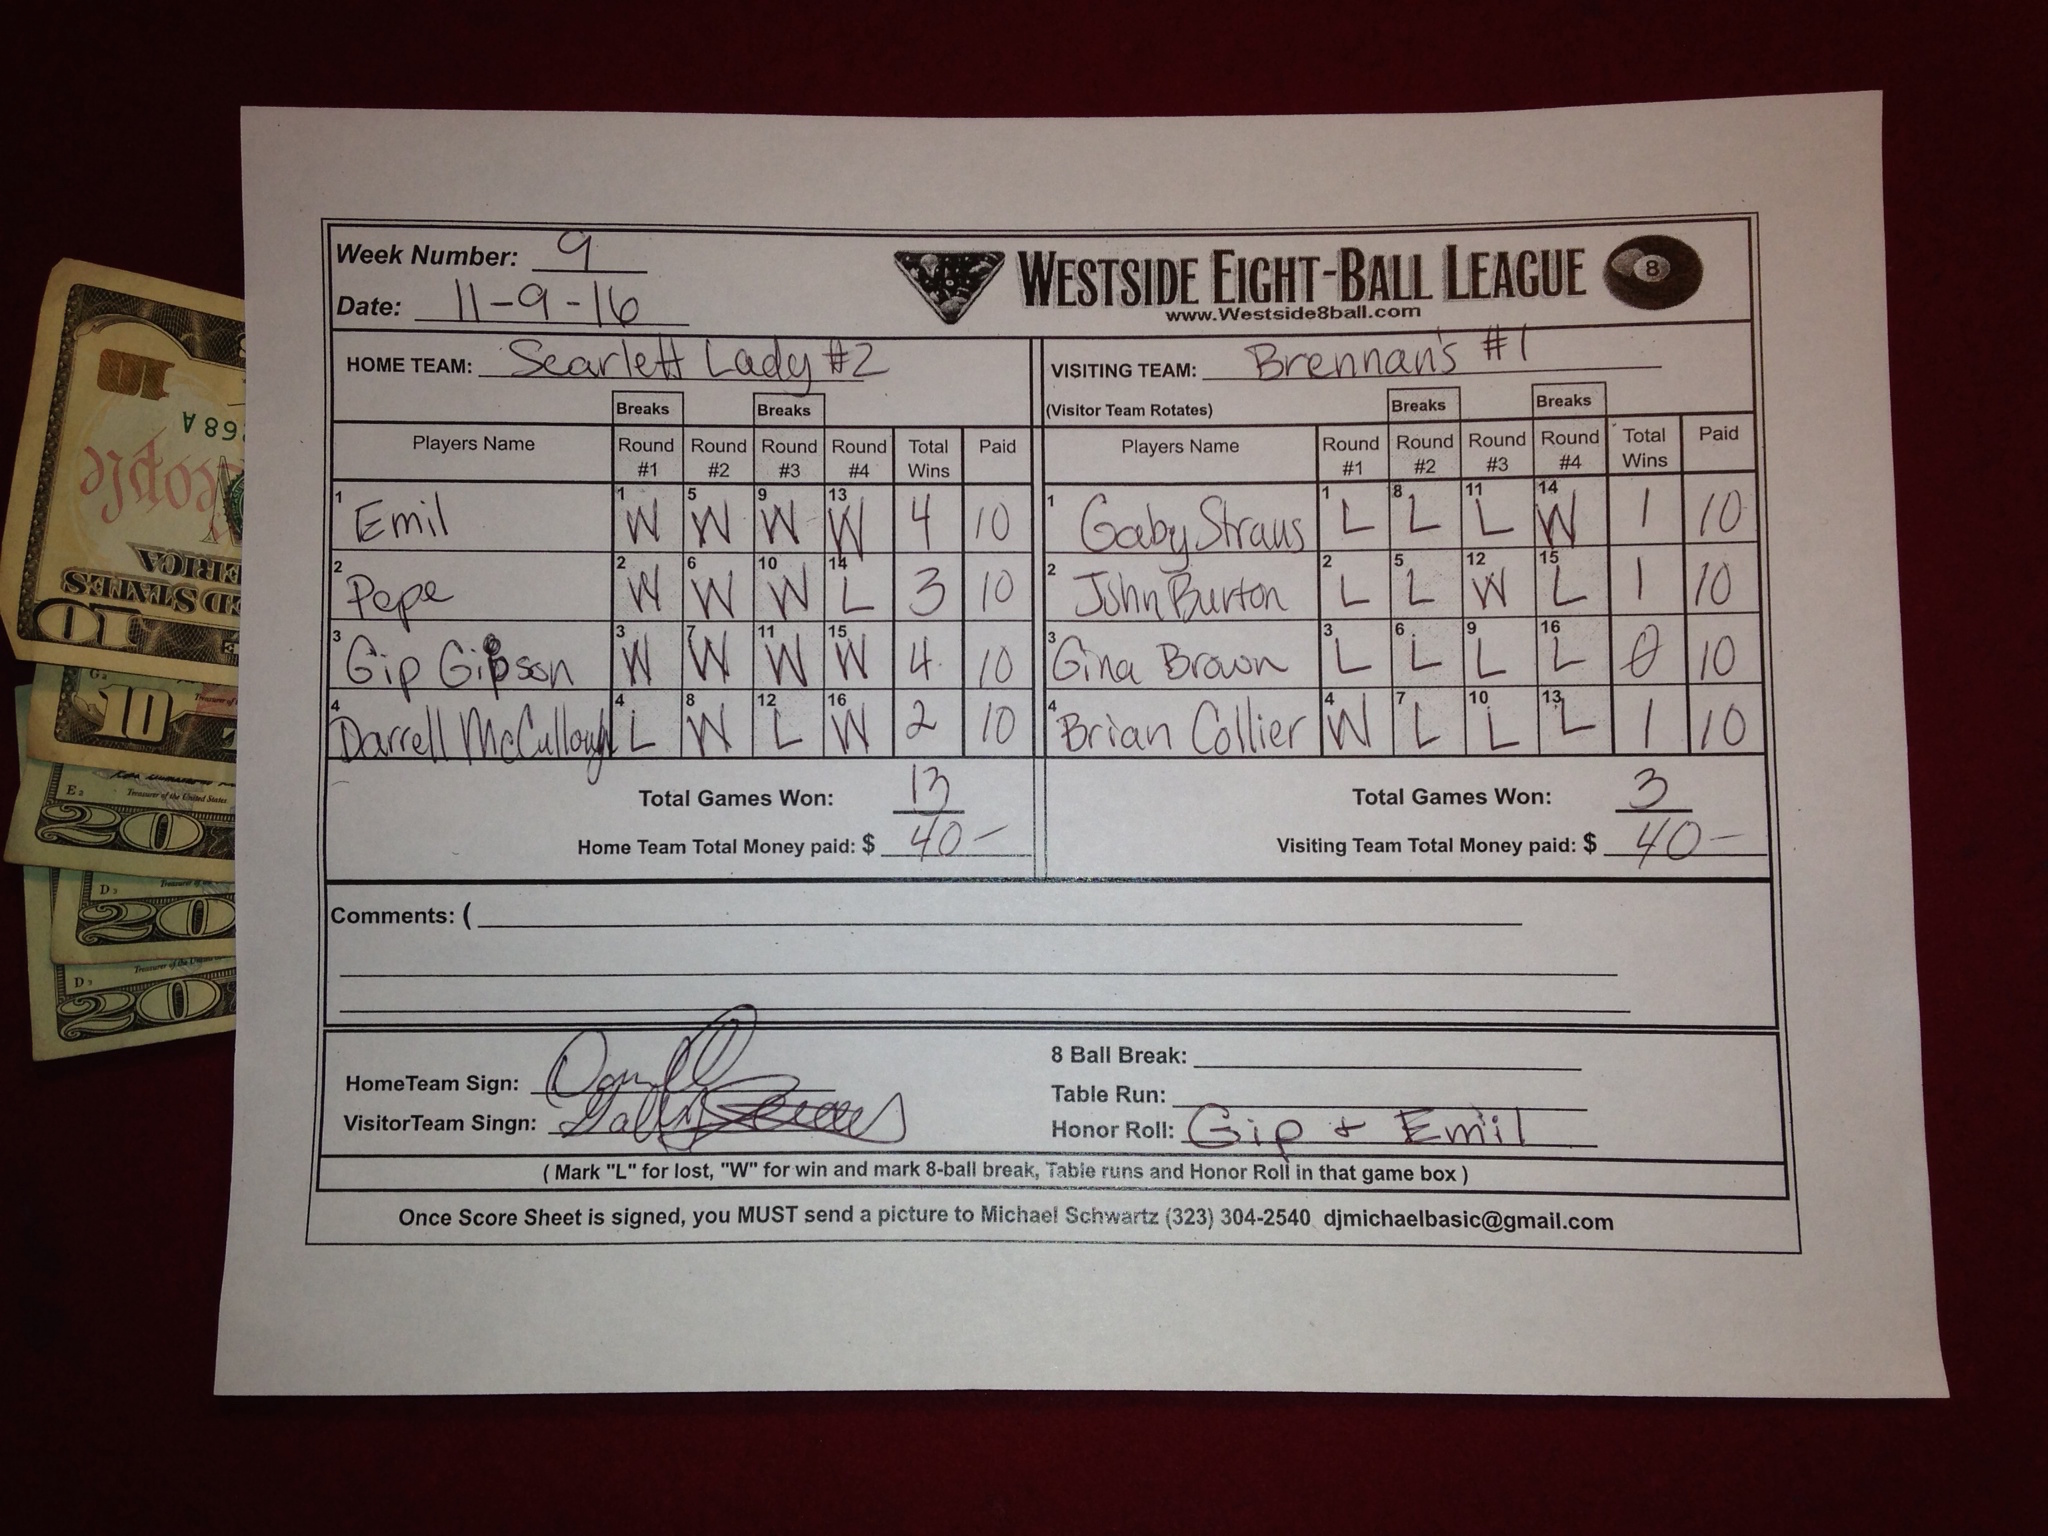 Week Number: 9
WESTSIDE EIGHT-BALL LEAGUE 8
www.Westside8ball.com
Date: 11-9-16
HOME TEAM: Scarlett Lady #2 VISITING TEAM: Brennan's #1
Breaks Breaks (Visitor Team Rotates) Breaks Breaks
Players Name Round #1 Round #2 Round #3 Round #4 Total Wins Paid Players Name Round #1 Round #2 Round #3 Round #4 Total Wins Paid
1 Emil 1 W 5 W 9 W 13 W 4 10 1 Gaby Straus 1 L 8 L 11 L 14 W 1 10
2 Pepe 2 W 6 W 10 W 14 L 3 10 2 John Burton 2 L 5 L 12 W 15 L 1 10
3 Gip Gibson 3 W 7 W 11 W 15 W 4 10 3 Gina Brown 3 L 6 L 9 L 16 L 0 10
4 Darrell McCullough 4 L 8 W 12 L 16 W 2 10 4 Brian Collier 4 W 7 L 10 L 13 L 1 10
Total Games Won: 13 Total Games Won: 3
Home Team Total Money paid: $ 40- Visiting Team Total Money paid: $ 40-
Comments: (
8 Ball Break:
HomeTeam Sign: Table Run:
VisitorTeam Singn: Honor Roll: Gip + Emil
( Mark "L" for lost, "W" for win and mark 8-ball break, Table runs and Honor Roll in that game box )
Once Score Sheet is signed, you MUST send a picture to Michael Schwartz (323) 304-2540 djmichaelbasic@gmail.com
10
68 A
People
ERICA
ED STATES
10
10
E2 Treasurer of the United States
20
D3
20
D3 Treasurer of the United
20